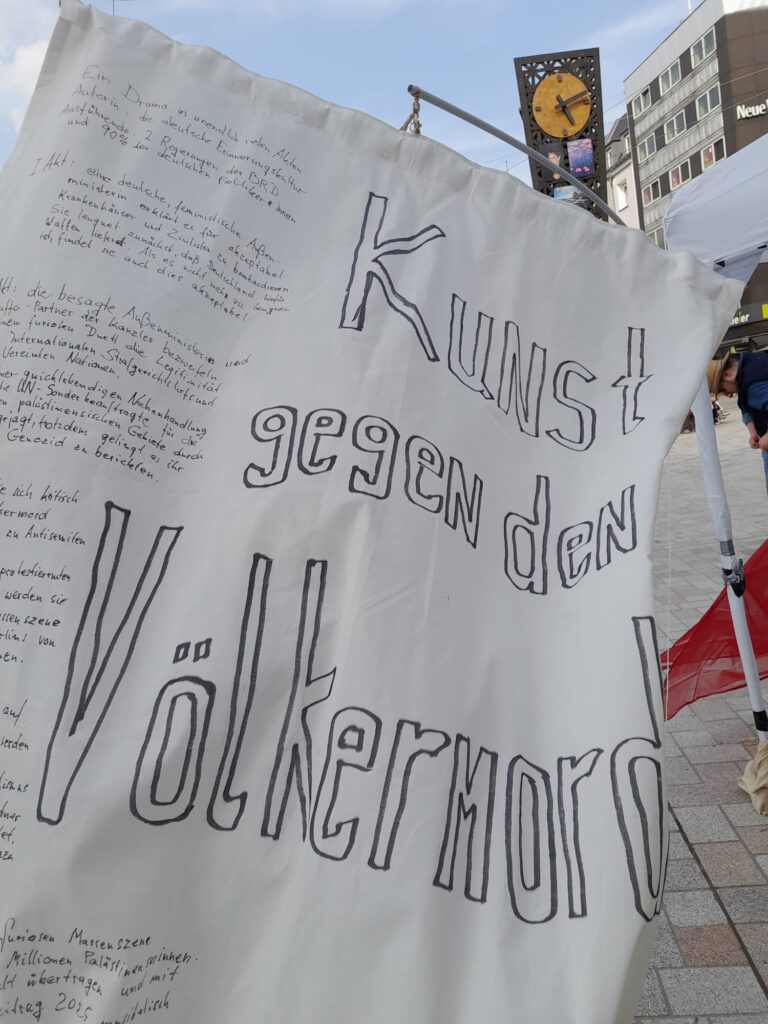 Ein Drama in unendlich vielen Akten
Autorin: die deutsche Erinnerungskultur
Ausführende: 2 Regierungen der BRD
und 90% der deutschen Politiker*innen
I. Akt: eine deutsche, feministische Außen-
ministerin erklärt es für akzeptabel
Krankenhäuser und Zivilisten zu bombardieren.
Sie leugnet zunächst, daß Deutschland hierfür
Waffen liefert. Als es nicht mehr zu leugnen
ist, findet sie auch dies akzeptabel.
Akt: die besagte Außenministerin und
Partner der Kanzler bezweifeln
einem furiosen Duett die Legitimität
Internationalen Strafgerichtshofs und
Vereinten Nationen.
quicklebendigen Nebenhandlung
die UN-Sonderbeauftragte für die
palästinensischen Gebiete durch
gejagt, trotzdem gelingt es ihr
Genozid zu berichten.
die sich kritisch
Völkermord
zu Antisemiten
protestierenden
werden sie
Massenszene
Berlins von
auf
werden
furiosen Massenszene
Millionen Palästinenserinnen:
übertragen und mit
2025
musikalisch
Kunst
gegen den
Völkermord
Neue